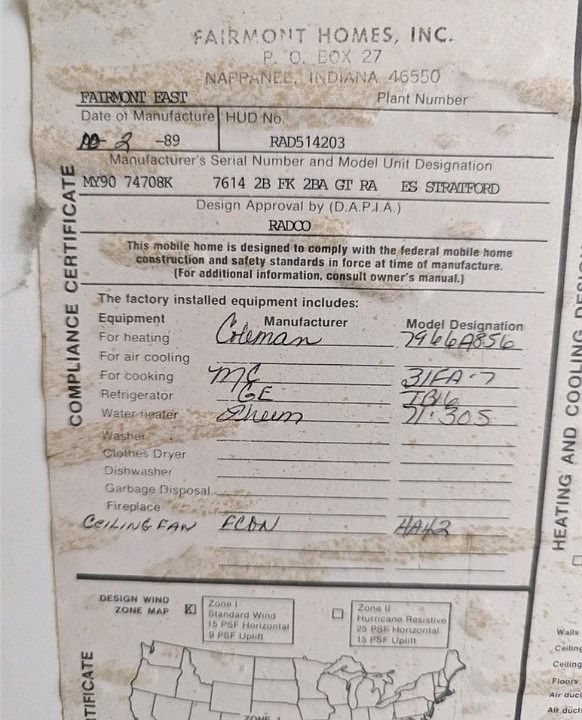 FAIRMONT HOMES, INC.
P. O. BOX 27
NAPPANEE, INDIANA 46550
FAIRMONT EAST Plant Number
Date of Manufacture HUD No.
10- 2 -89 RAD514203
Manufacturer's Serial Number and Model Unit Designation
MY90 74708K 7614 2B FK 2BA GT RA ES STRATFORD
Design Approval by (D.A.P.I.A.)
RADCO
This mobile home is designed to comply with the federal mobile home
construction and safety standards in force at time of manufacture.
(For additional information, consult owner's manual.)
COMPLIANCE CERTIFICATE
The factory installed equipment includes:
Equipment Manufacturer Model Designation
For heating Coleman 7966A856
For air cooling
For cooking MC 31FA-7
Refrigerator GE TB16
Water heater Rheem 71-30S
Washer
Clothes Dryer
Dishwasher
Garbage Disposal
Fireplace
CEILING FAN ECON HA42
DESIGN WIND
ZONE MAP
X
Zone I
Standard Wind
15 PSF Horizontal
9 PSF Uplift
Zone II
Hurricane Resistive
25 PSF Horizontal
15 PSF Uplift
ZONE
TIFICATE
HEATING AND COOLING
Walls
Ceiling
Ceiling
Floors
Air duct
Air duct